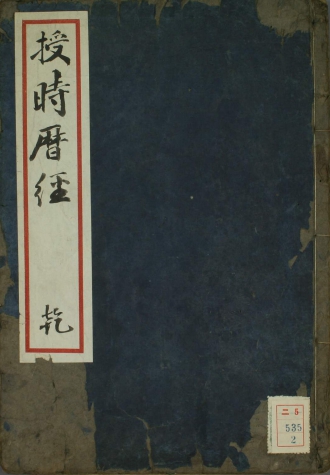 授時暦経
乾
二 5
535
2